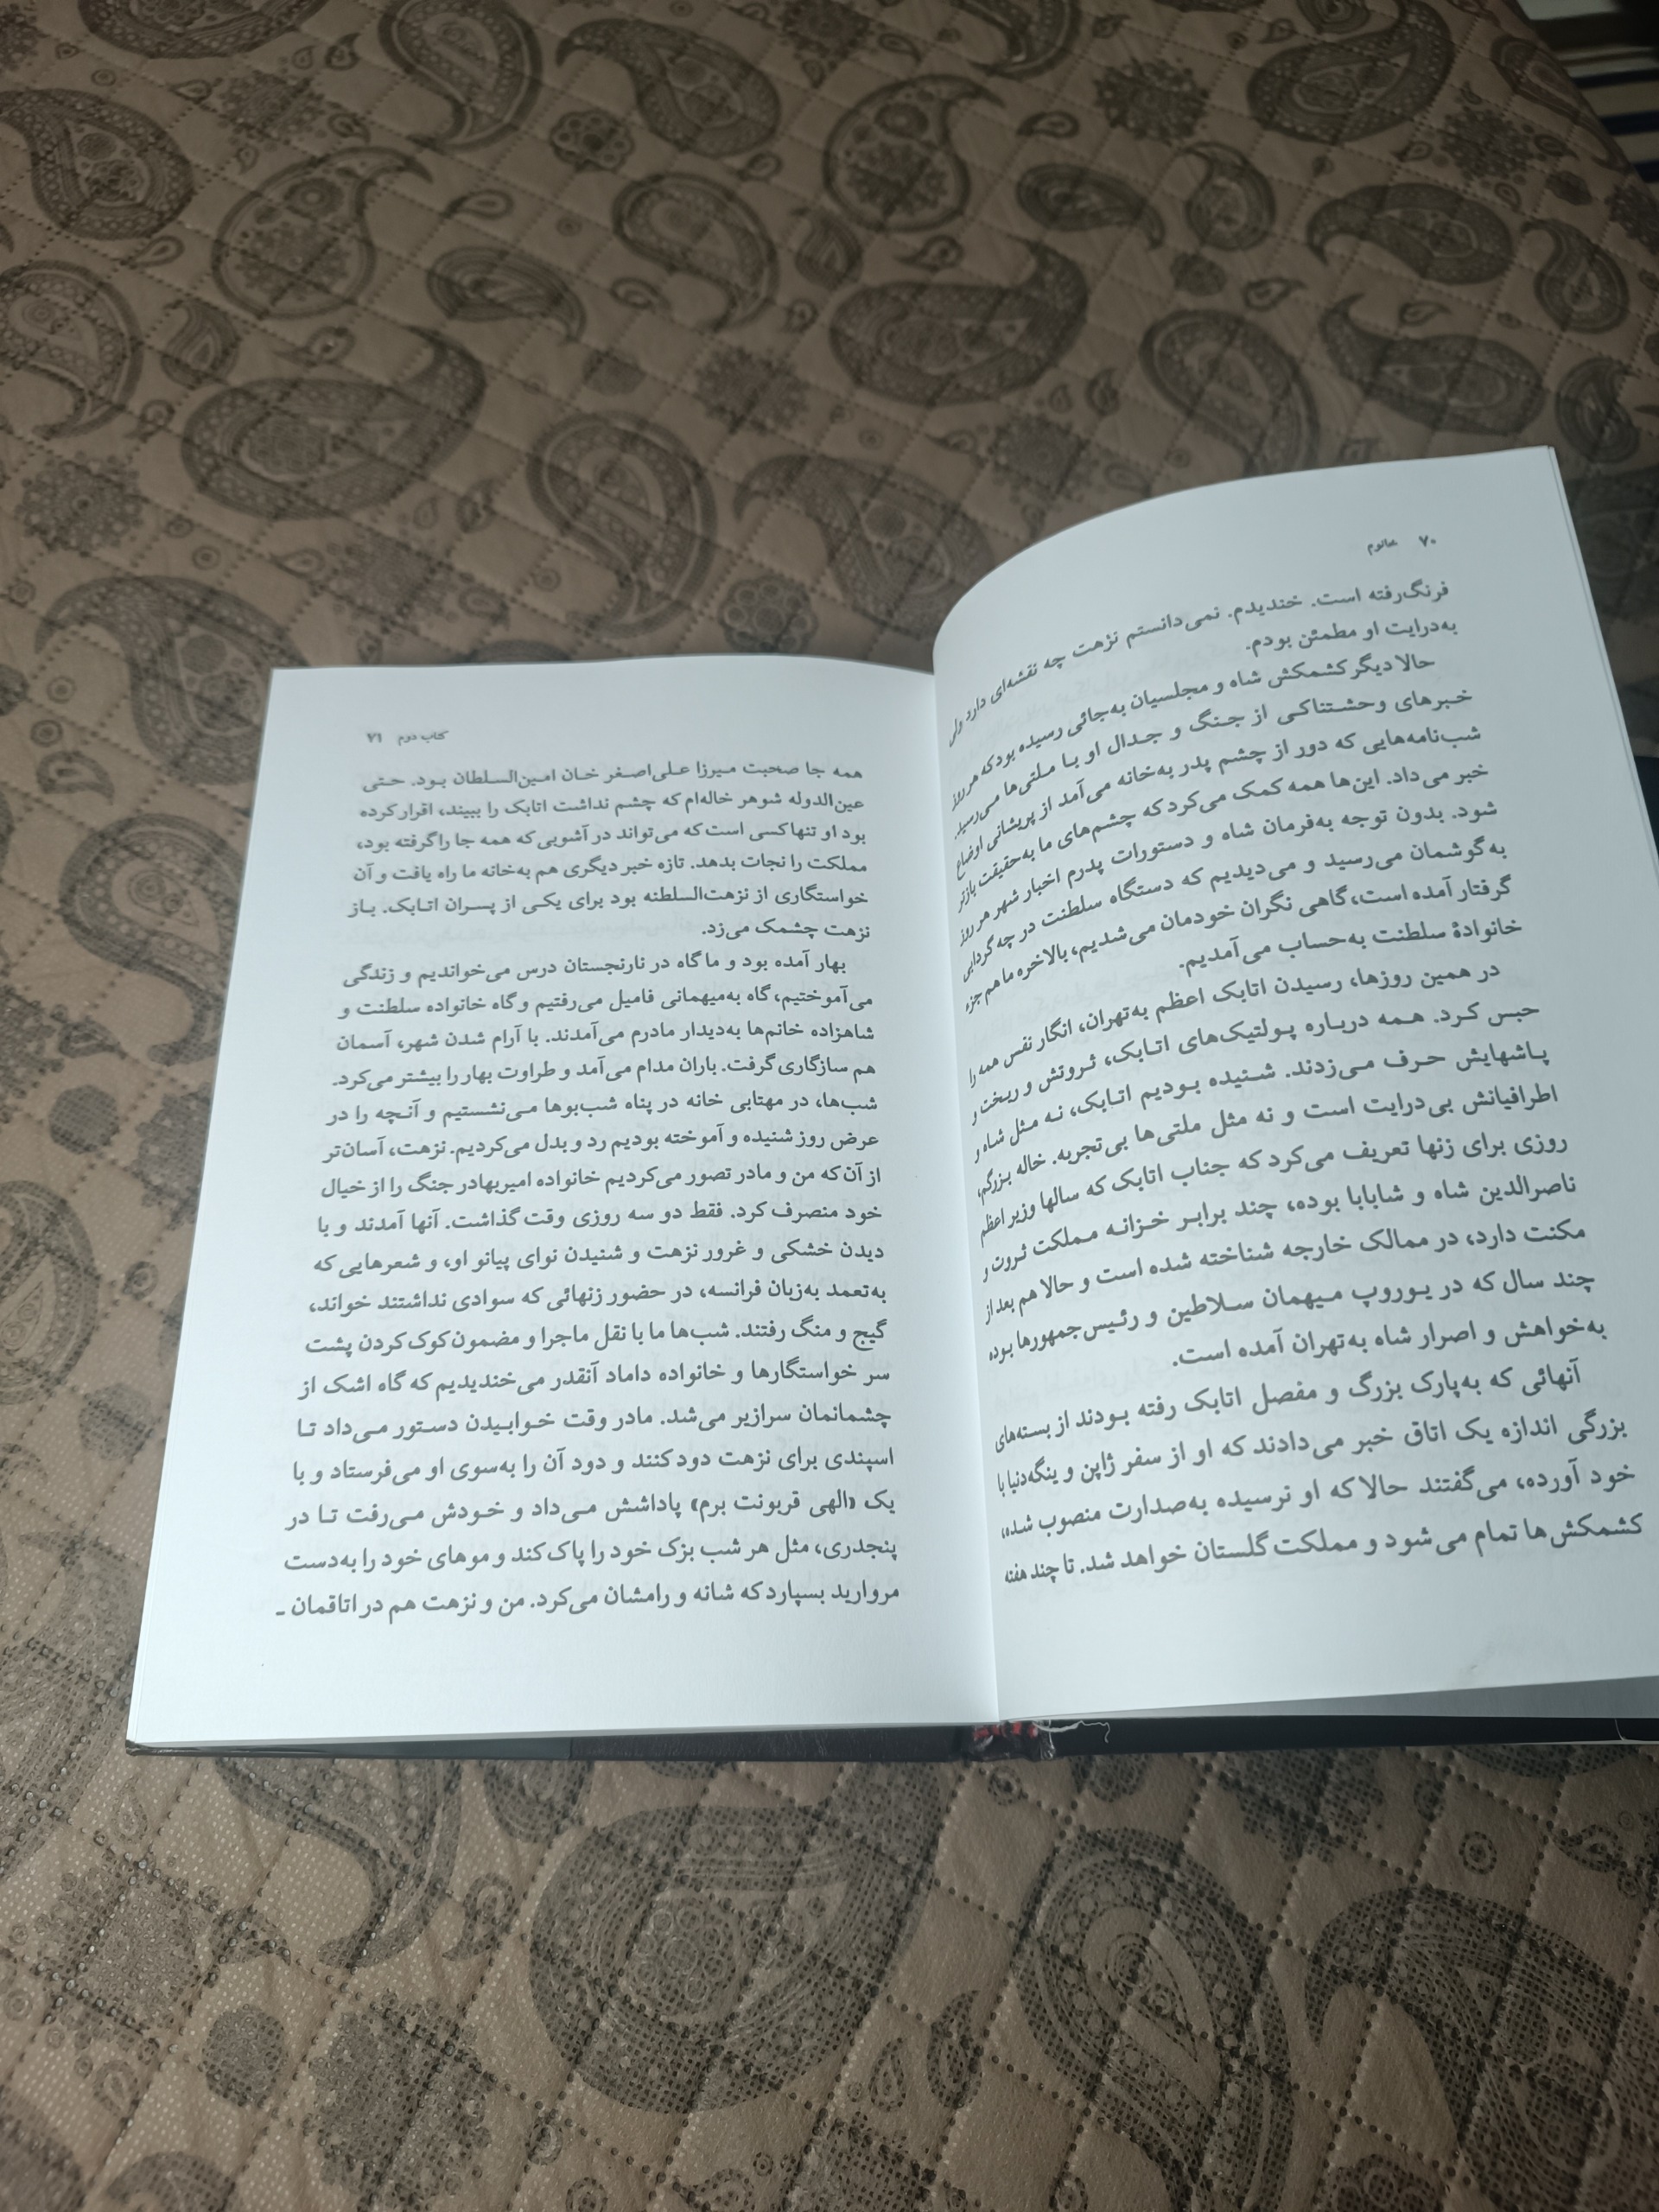 ۷۰ خانوم
فرنگ‌رفته است. خندیدم. نمی‌دانستم نزهت چه نقشه‌ای دارد ولی
به‌درایت او مطمئن بودم.
حالا دیگر کشمکش شاه و مجلسیان به‌جائی رسیده بود که هر روز
خبرهای وحشتناکی از جنگ و جدال او با ملتی‌ها می‌رسید.
شب‌نامه‌هایی که دور از چشم پدر به‌خانه می‌آمد از پریشانی اوضاع
خبر می‌داد. این‌ها همه کمک می‌کرد که چشم‌های ما به‌حقیقت بازتر
شود. بدون توجه به‌فرمان شاه و دستورات پدرم اخبار شهر هر روز
به‌گوشمان می‌رسید و می‌دیدیم که دستگاه سلطنت در چه گردابی
گرفتار آمده است، گاهی نگران خودمان می‌شدیم، بالاخره ما هم جزء
خانوادهٔ سلطنت به‌حساب می‌آمدیم.
در همین روزها، رسیدن اتابک اعظم به‌تهران، انگار نفس همه را
حبس کرد. همه درباره پولتیک‌های اتابک، ثروتش و ریخت و
پاشهایش حرف می‌زدند. شنیده بودیم اتابک، نه مثل شاه و
اطرافیانش بی‌درایت است و نه مثل ملتی‌ها بی‌تجربه. خاله بزرگم،
روزی برای زنها تعریف می‌کرد که جناب اتابک که سالها وزیر اعظم
ناصرالدین شاه و شابابا بوده، چند برابر خزانه مملکت ثروت و
مکنت دارد، در ممالک خارجه شناخته شده است و حالا هم بعد از
چند سال که در یوروپ میهمان سلاطین و رئیس‌جمهورها بوده
به‌خواهش و اصرار شاه به‌تهران آمده است.
آنهائی که به‌پارک بزرگ و مفصل اتابک رفته بودند از بسته‌های
بزرگی اندازه یک اتاق خبر می‌دادند که او از سفر ژاپن و ینگه‌دنیا با
خود آورده، می‌گفتند حالا که او نرسیده به‌صدارت منصوب شده،
کشمکش‌ها تمام می‌شود و مملکت گلستان خواهد شد. تا چند هفته
کتاب دوم ۷۱
همه جا صحبت میرزا علی‌اصغر خان امین‌السلطان بود. حتی
عین‌الدوله شوهر خاله‌ام که چشم نداشت اتابک را ببیند، اقرار کرده
بود او تنها کسی است که می‌تواند در آشوبی که همه جا را گرفته بود،
مملکت را نجات بدهد. تازه خبر دیگری هم به‌خانه ما راه یافت و آن
خواستگاری از نزهت‌السلطنه بود برای یکی از پسران اتابک. باز
نزهت چشمک می‌زد.
بهار آمده بود و ما گاه در نارنجستان درس می‌خواندیم و زندگی
می‌آموختیم، گاه به‌میهمانی فامیل می‌رفتیم و گاه خانواده سلطنت و
شاهزاده خانم‌ها به‌دیدار مادرم می‌آمدند. با آرام شدن شهر، آسمان
هم سازگاری گرفت. باران مدام می‌آمد و طراوت بهار را بیشتر می‌کرد.
شب‌ها، در مهتابی خانه در پناه شب‌بوها می‌نشستیم و آنچه را در
عرض روز شنیده و آموخته بودیم رد و بدل می‌کردیم. نزهت، آسان‌تر
از آن که من و مادر تصور می‌کردیم خانواده امیربهادر جنگ را از خیال
خود منصرف کرد. فقط دو سه روزی وقت گذاشت. آنها آمدند و با
دیدن خشکی و غرور نزهت و شنیدن نوای پیانو او، و شعرهایی که
به‌تعمد به‌زبان فرانسه، در حضور زنهائی که سوادی نداشتند خواند،
گیج و منگ رفتند. شب‌ها ما با نقل ماجرا و مضمون کوک کردن پشت
سر خواستگارها و خانواده داماد آنقدر می‌خندیدیم که گاه اشک از
چشمانمان سرازیر می‌شد. مادر وقت خوابیدن دستور می‌داد تا
اسپندی برای نزهت دود کنند و دود آن را به‌سوی او می‌فرستاد و با
یک «الهی قربونت برم» پاداشش می‌داد و خودش می‌رفت تا در
پنجدری، مثل هر شب بزک خود را پاک کند و موهای خود را به‌دست
مروارید بسپارد که شانه و رامشان می‌کرد. من و نزهت هم در اتاقمان ـ